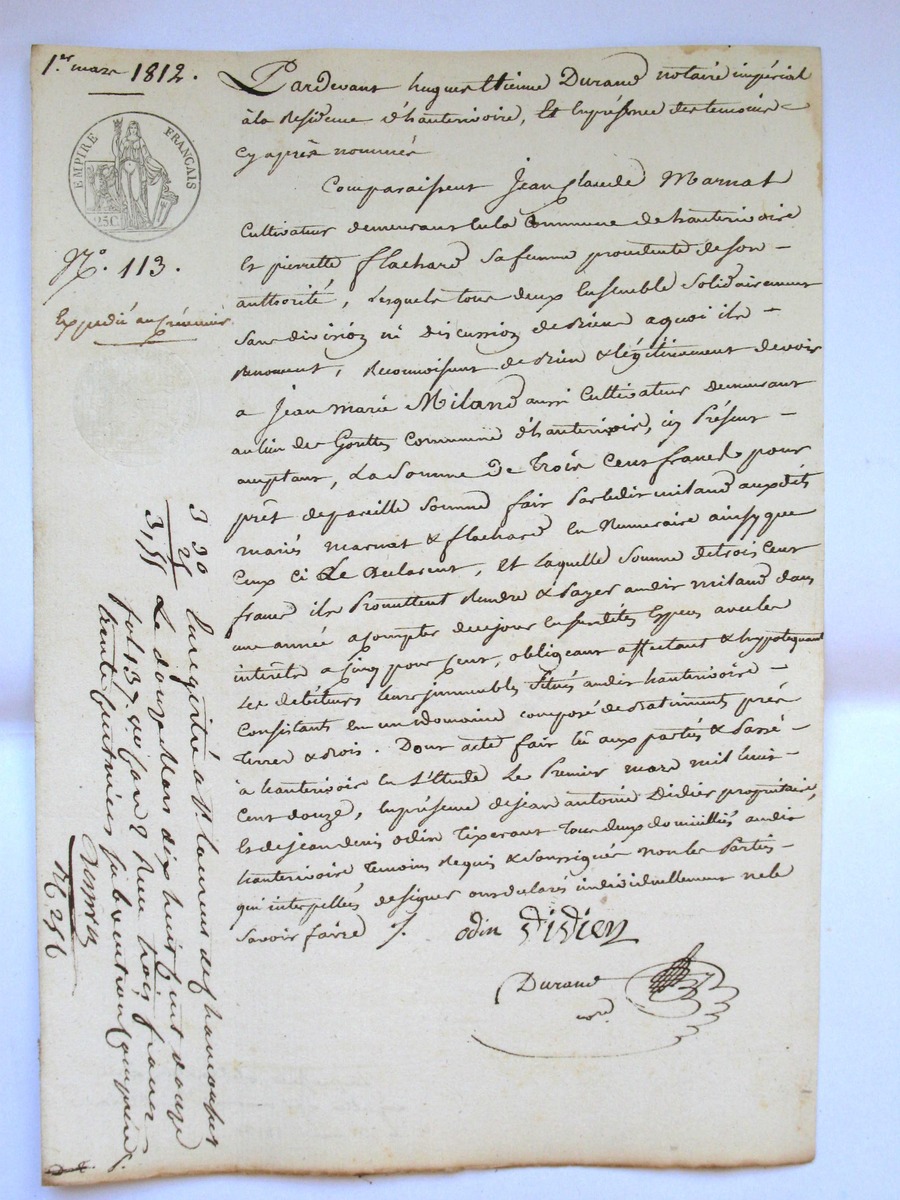 1er mars 1812.
EMPIRE FRANÇAIS
25C
No. 113.
Expedié au créancier
Pardevant hugues Etienne Durand notaire impérial
à la Residence d'hauterivoire, Et en présence des temoins
cy après nommés
Comparaissent Jean Claude Marnat
Cultivateur demeurant en la Commune de hauterivoire
Et pierrette flachard sa femme procedente de son
authorité, Lesquels tous deux Ensemble Solidairement
Sans division ni discussion de Biens a quoi ils
Renoncent, Reconnoissent de Bien & légitimement devoir
a Jean marie Miland aussi Cultivateur Demeurant
au lieu des Gouttes Commune d'hauterivoire, icy Présent
acceptant, La Somme De Trois Cent francs pour
prêt de pareille Somme fait Par ledit miland auxdits
mariés marnat & flachard En Numeraire ainsy que
Ceux ci Le declarent, Et laquelle Somme de trois Cent
francs ils Promettent Rendre & Payer audit miland dans
une année a compter de ce jour En susdites Especes avec les
interêts a cinq pour cent, obligeant affectant & hypotequant
Les debiteurs leurs immeubles Situés audit hauterivoire
Consistants En un domaine composé de Batiments prés
Terres & Bois. Dont acte fait lû aux parties & Passé
à hauterivoire En L'Etude Le Premier mars mil huit
Cent douze, En présence de jean antoine Didier propriétaire,
Et de jean denis odin Tixerant Tous deux domiciliés audit
hauterivoire Temoins Requis & Soussignés non les Parties
qui interpellés de signer ont declaré individuellement ne le
Savoir faire ./.
odin Didier
Durand
nre
Enregistré à St. Laurent de Chamousset
Le douze Mars dix huit cent douze
fol. 137. Reçu trois francs
trente centimes, subvention comprise.
3 30
3,55